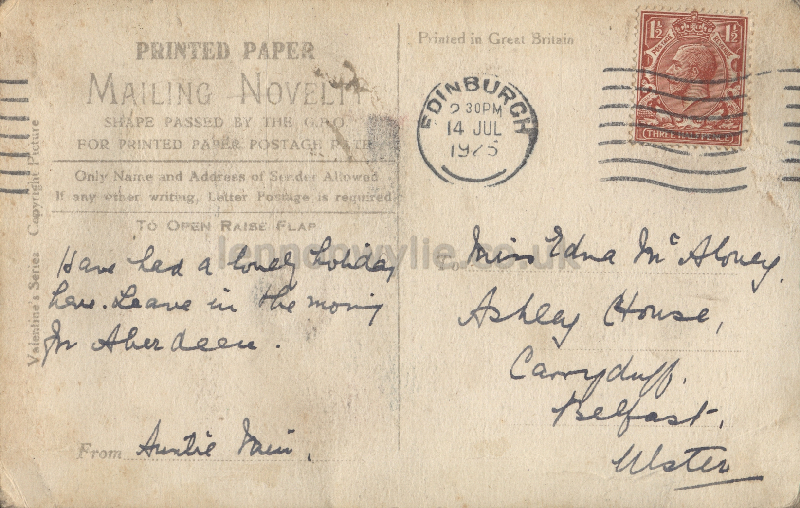 PRINTED PAPER
MAILING NOVELTY
SHAPE PASSED BY THE G.P.O
FOR PRINTED PAPER POSTAGE RATE
Only Name and Address of Sender Allowed
If any other writing, Letter Postage is required
TO OPEN RAISE FLAP
Have had a lovely holiday
here. Leave in the morning
for Aberdeen.
From Auntie Min.
Valentine's Series Copyright Picture
Printed in Great Britain
EDINBURGH
2 30PM
14 JUL
1925
1½ 1½
POSTAGE REVENUE
THREE HALFPENCE
To Miss Edna McAloney.
Ashley House,
Carryduff.
Belfast.
Ulster
lennonwylie.co.uk